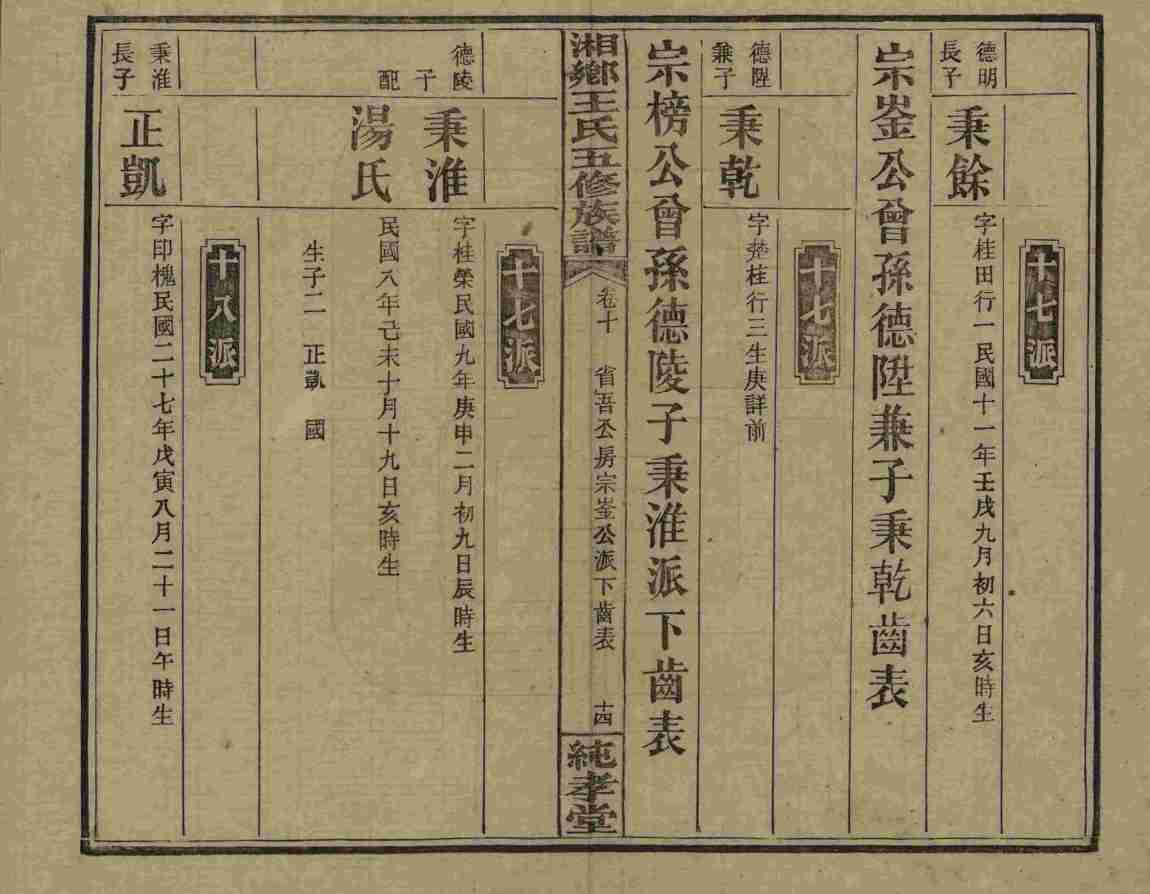 十七派
德明
長子
秉餘
字桂田行一民國十一年壬戌九月初六日亥時生
宗崟公曾孫德陞兼子秉乾齒表
十七派
德陞
兼子
秉乾
字楚桂行三生庚詳前
宗榜公曾孫德陵子秉淮派下齒表
湘鄉王氏五修族譜
卷十
省吾公房宗崟公派下齒表
十四
純孝堂
十七派
德陵
子
秉淮
字桂榮民國九年庚申二月初九日辰時生
配
湯氏
民國八年己未十月十九日亥時生
生子二 正凱 國
十八派
秉淮
長子
正凱
字印槐民國二十七年戊寅八月二十一日午時生